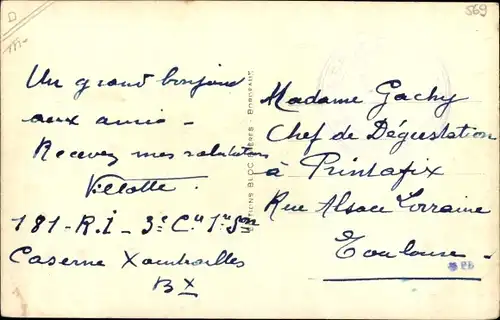 569
Un grand bonjour
aux amis -
Recevez mes salutations
Villotte.
181 - R.I - 3e Cie 1re Son
Caserne Xaintrailles
BX
EDITIONS BLOC FRERES - BORDEAUX
Madame Gachy
Chef de Dégustation
à Printafix
Rue Alsace Lorraine
Toulouse -
PB